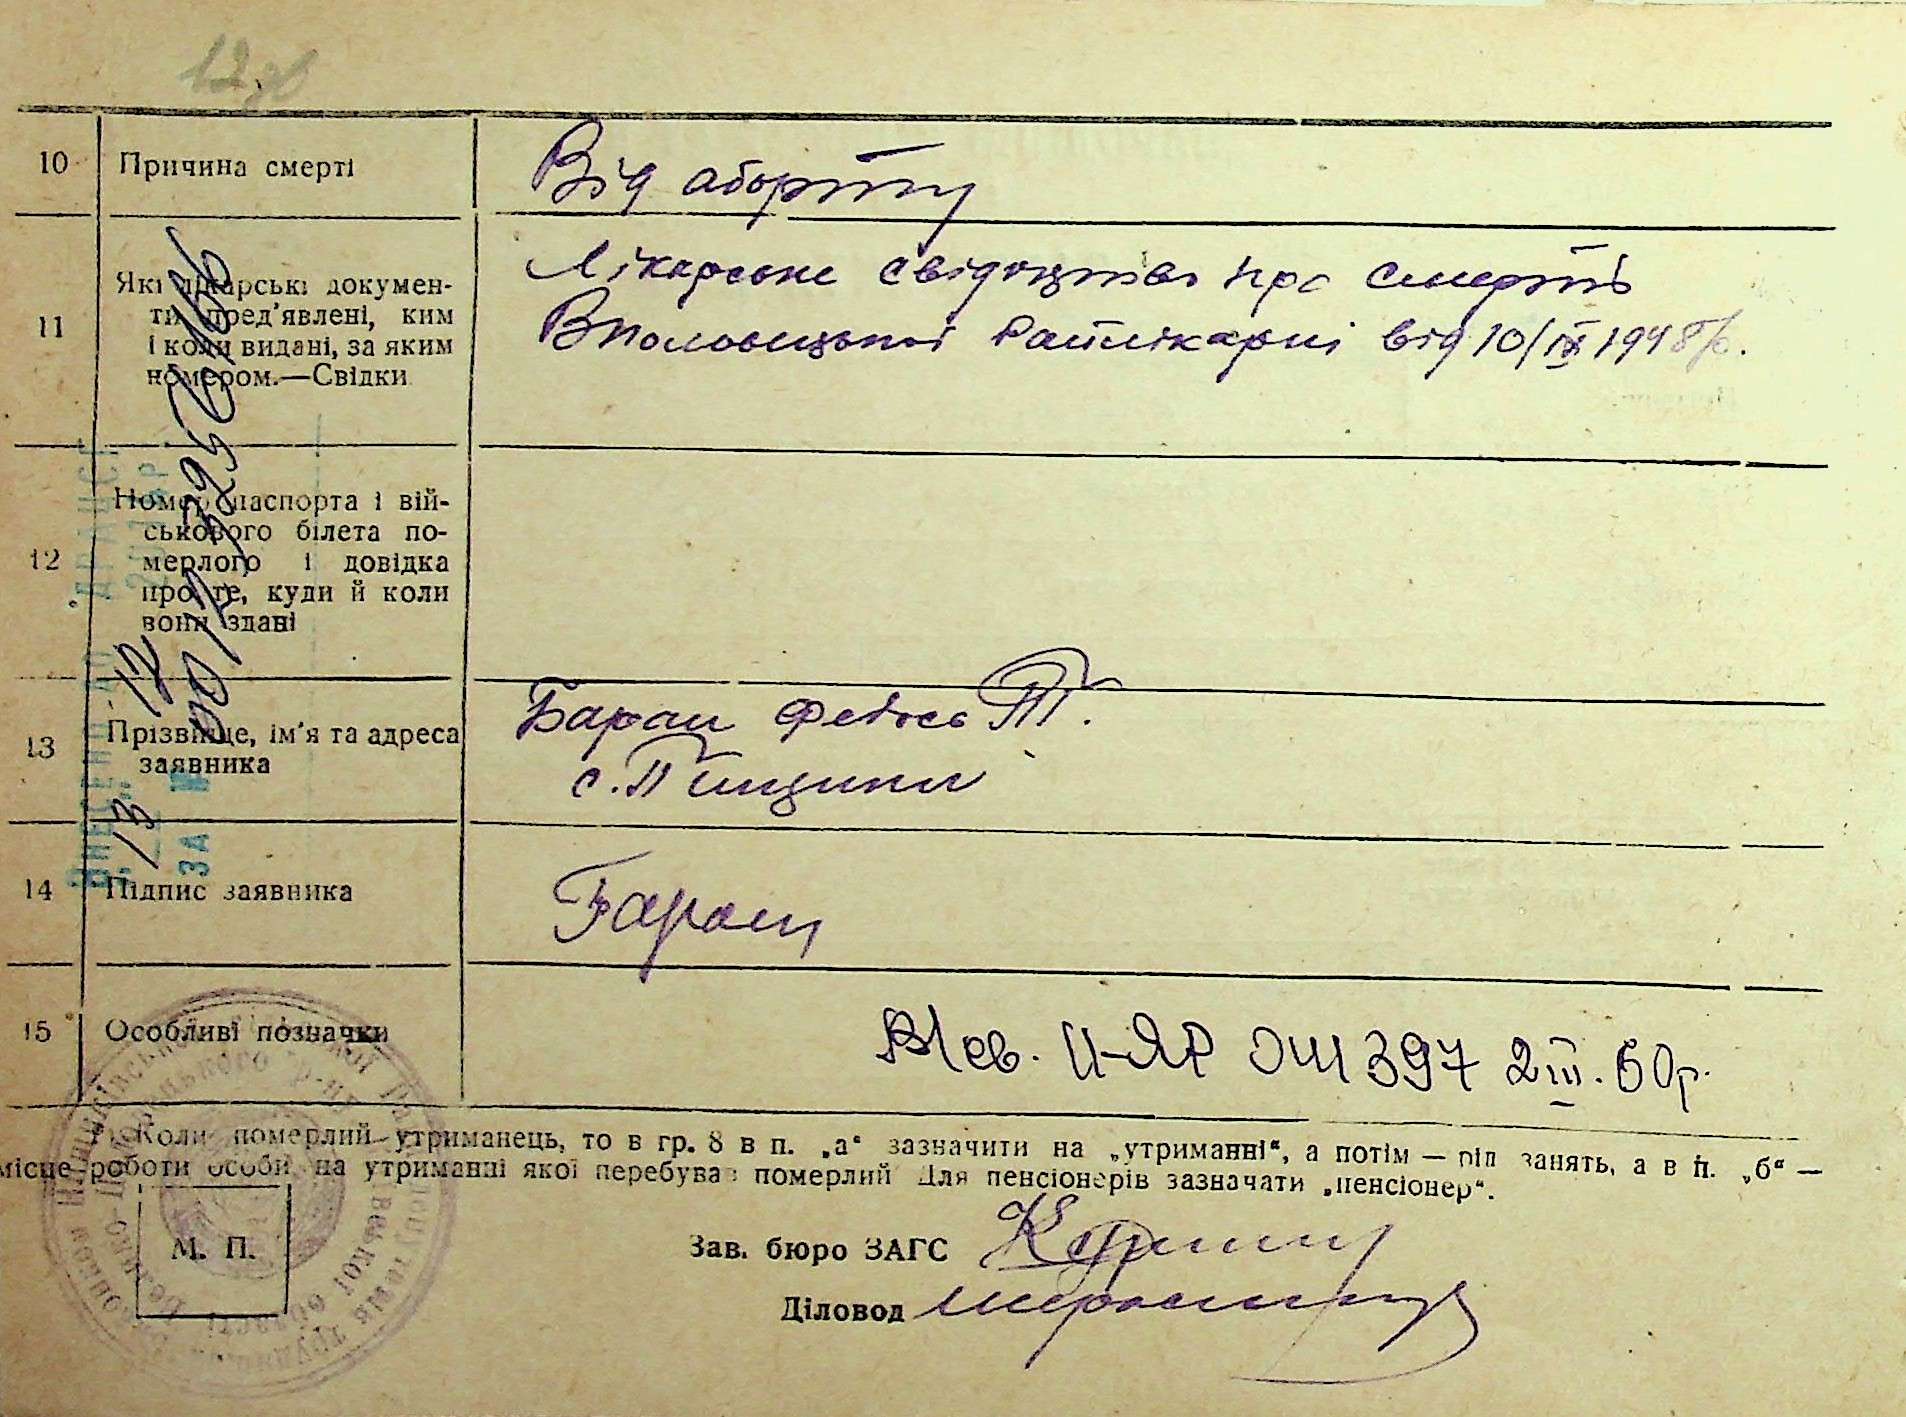 10 Причина смерті Від аборту
11 Які лікарські докумен-
ти пред'явлені, ким
і коли видані, за яким
номером.—Свідки
Лікарське свідоцтво про смерть
Вполовецької Райлікарні від 10/IX 1948 р.
12 Номер паспорта і вій-
ськового білета по-
мерлого і довідка
про те, куди й коли
вони здані
13 Прізвище, ім'я та адреса
заявника
Баран Федось П.
с. Пищики
14 Підпис заявника Баран
15 Особливі позначки
II-ЯР 041397 2 III. 60р.
Коли померлий—утриманець, то в гр. 8 в п. „а“ зазначити на „утриманні“, а потім — рід занять, а в п. „б“ —
місце роботи особи, на утриманні якої перебував померлий Для пенсіонерів зазначати „пенсіонер“.
М. П.
Зав. бюро ЗАГС
Діловод
ЗА №